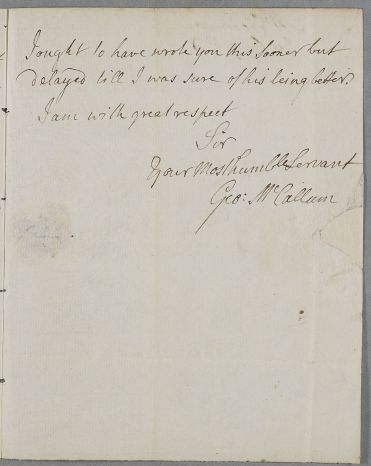 I ought to have wrote you this sooner but
delayed till I was sure of his being better.
I am with great respect
Sir
Your Most humble Servant
Geo: McCallum